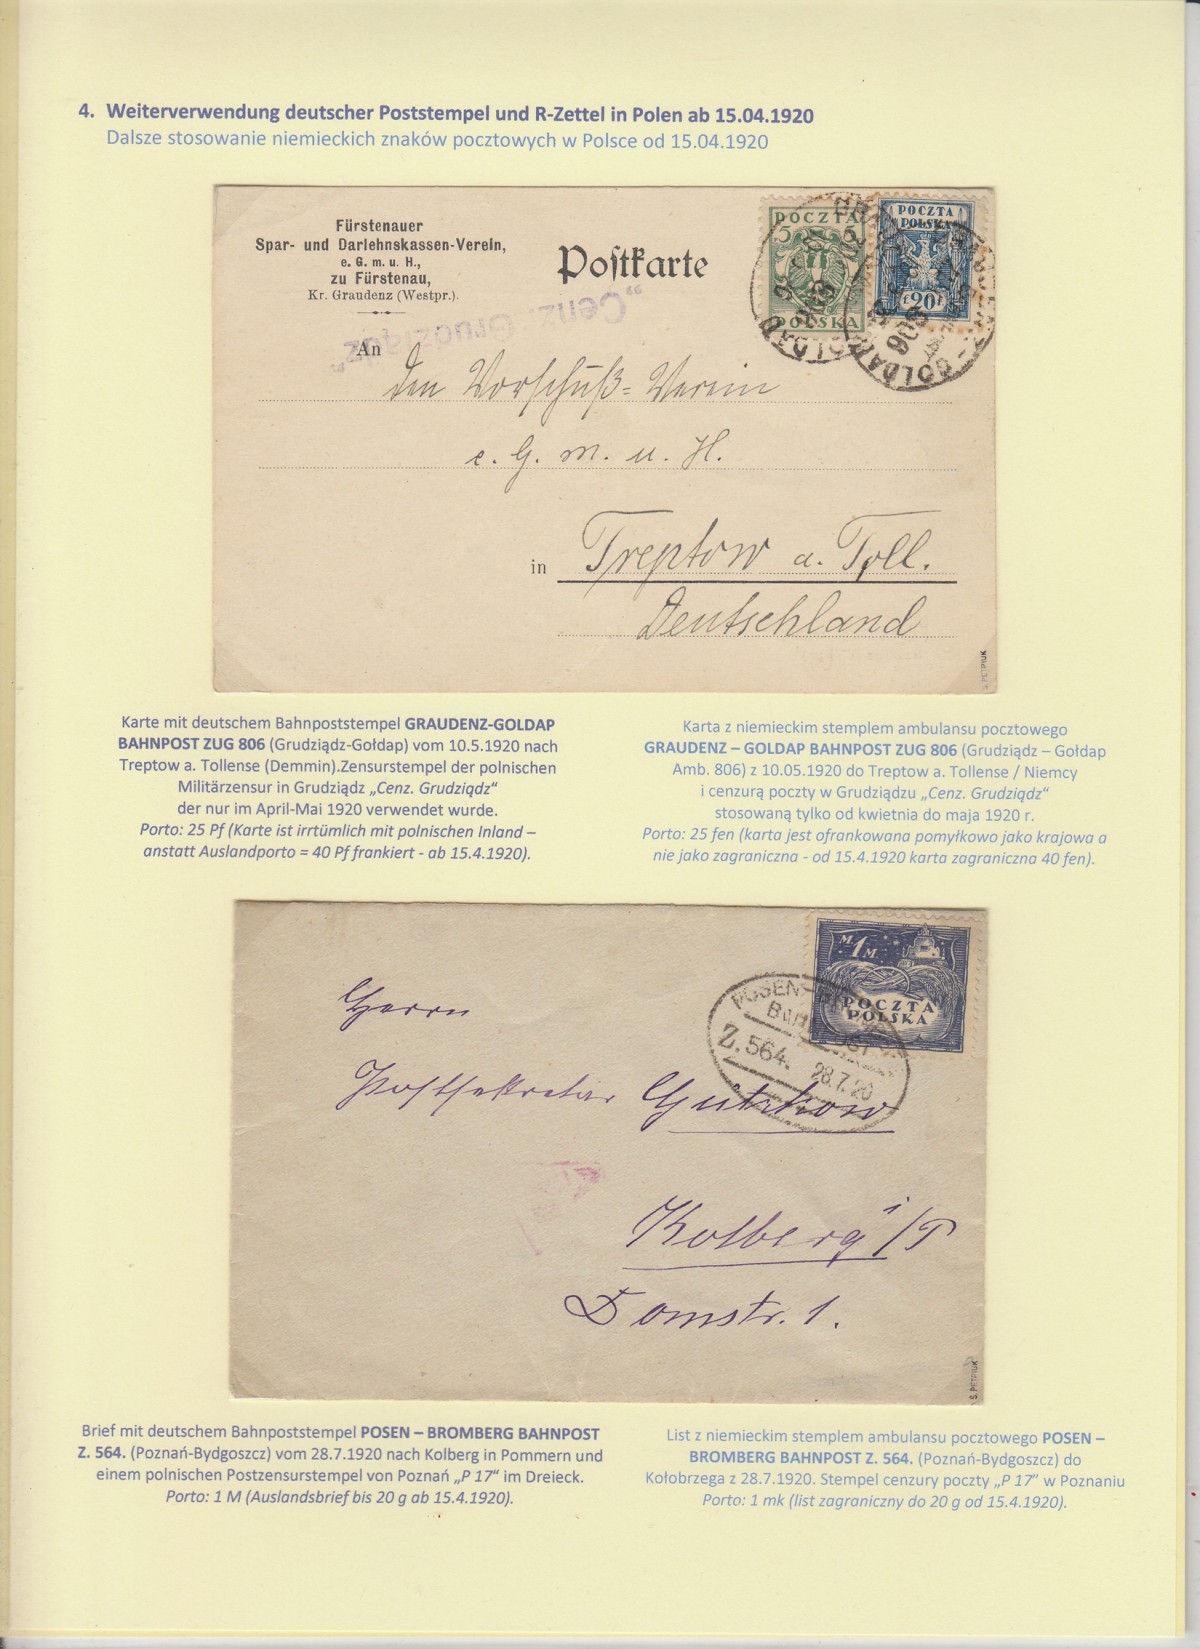 4. Weiterverwendung deutscher Poststempel und R-Zettel in Polen ab 15.04.1920
Dalsze stosowanie niemieckich znaków pocztowych w Polsce od 15.04.1920
Fürstenauer
Spar- und Darlehnskassen-Verein,
e. G. m. u. H.,
zu Fürstenau,
Kr. Graudenz (Westpr.).
Postkarte
POCZTA
5 5
POLSKA
POCZTA
POLSKA
F 20 F
GOLDAP
806
„Cenz. Grudziądz"
An
den Vorschuß-Verein
e. G. m. u. H.
in Treptow a. Toll.
Deutschland
S. PETRIUK
Karte mit deutschem Bahnpoststempel GRAUDENZ-GOLDAP
BAHNPOST ZUG 806 (Grudziądz-Gołdap) vom 10.5.1920 nach
Treptow a. Tollense (Demmin).Zensurstempel der polnischen
Militärzensur in Grudziądz „Cenz. Grudziądz"
der nur im April-Mai 1920 verwendet wurde.
Porto: 25 Pf (Karte ist irrtümlich mit polnischen Inland –
anstatt Auslandporto = 40 Pf frankiert - ab 15.4.1920).
Karta z niemieckim stemplem ambulansu pocztowego
GRAUDENZ – GOLDAP BAHNPOST ZUG 806 (Grudziądz – Gołdap
Amb. 806) z 10.05.1920 do Treptow a. Tollense / Niemcy
i cenzurą poczty w Grudziądzu „Cenz. Grudziądz"
stosowaną tylko od kwietnia do maja 1920 r.
Porto: 25 fen (karta jest ofrankowana pomyłkowo jako krajowa a
nie jako zagraniczna - od 15.4.1920 karta zagraniczna 40 fen).
M. 1 M.
POCZTA
POLSKA
POSEN-
Z. 564. 28.7.20
Herrn
Postsekretär Gützkow
Kolberg i/P
Domstr. 1.
S. PETRIUK
Brief mit deutschem Bahnpoststempel POSEN – BROMBERG BAHNPOST
Z. 564. (Poznań-Bydgoszcz) vom 28.7.1920 nach Kolberg in Pommern und
einem polnischen Postzensurstempel von Poznań „P 17" im Dreieck.
Porto: 1 M (Auslandsbrief bis 20 g ab 15.4.1920).
List z niemieckim stemplem ambulansu pocztowego POSEN –
BROMBERG BAHNPOST Z. 564. (Poznań-Bydgoszcz) do
Kołobrzega z 28.7.1920. Stempel cenzury poczty „P 17" w Poznaniu
Porto: 1 mk (list zagraniczny do 20 g od 15.4.1920).